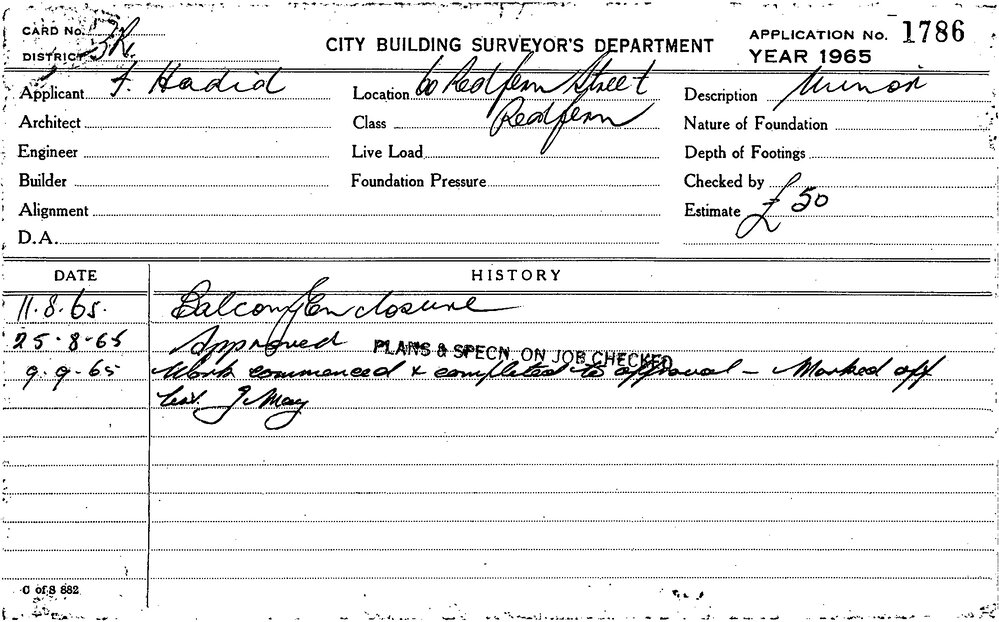 CARD No.
CITY BUILDING SURVEYOR'S DEPARTMENT
APPLICATION No. 1786
DISTRICT
YEAR 1965
Applicant F. Hadid
Location 60 Redfern Street
Redfern
Description Minor
Architect
Class
Nature of Foundation
Engineer
Live Load
Depth of Footings
Builder
Foundation Pressure
Checked by
Alignment
Estimate £ 50
D.A.
DATE HISTORY
11.8.65. Balcony Enclosure
25.8.65 Approved PLANS & SPECN. ON JOB CHECKED
9.9.65 Work commenced & completed to approval – Marked off
J May
C of S 882